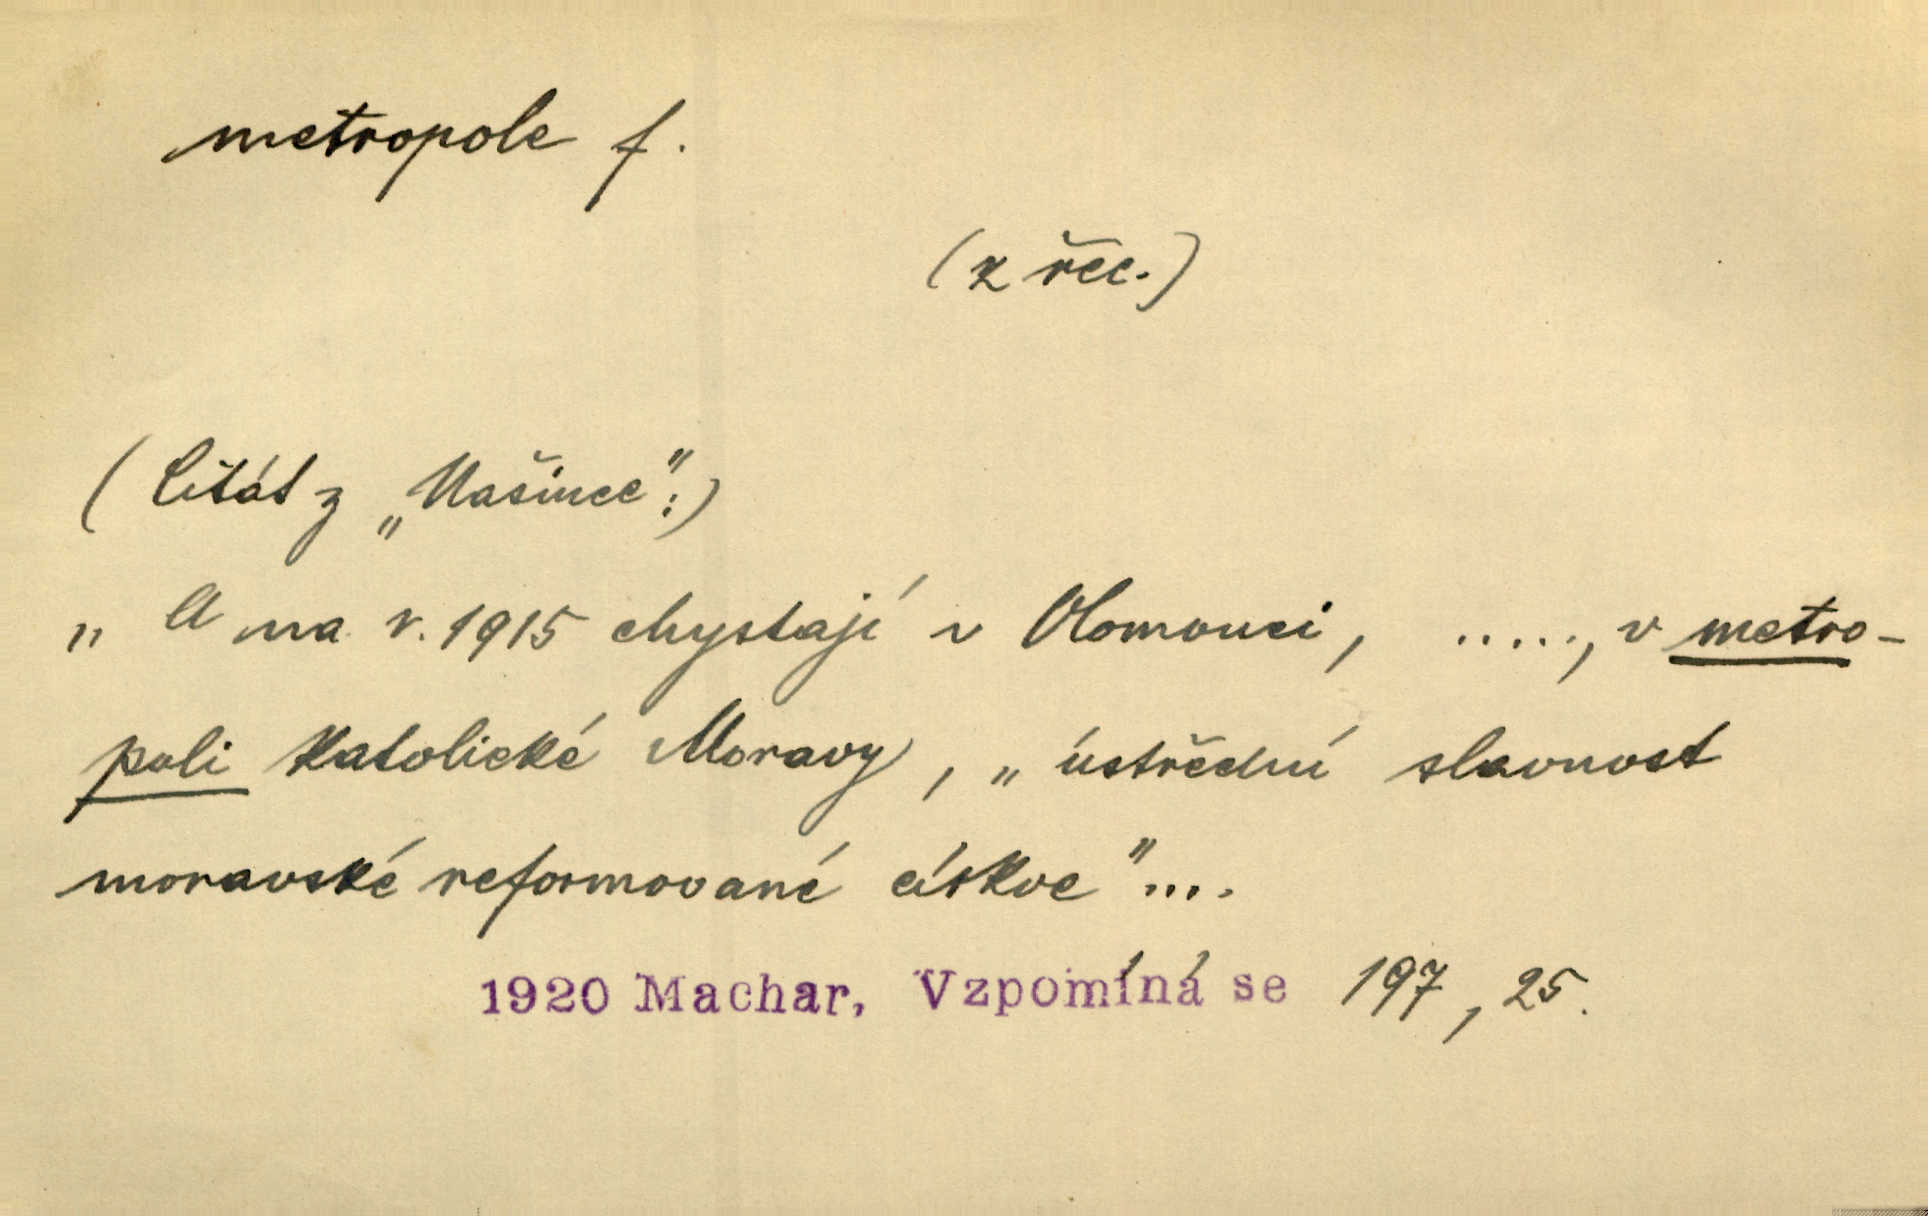 metropole f.
(z řec.)
(Citát z „Našince":)
„A na r. 1915 chystají v Olomouci, ....., v metro-
poli katolické Moravy, „ústřední slavnost
moravské reformované církve"....
1920 Machar, Vzpomíná se 197, 25.